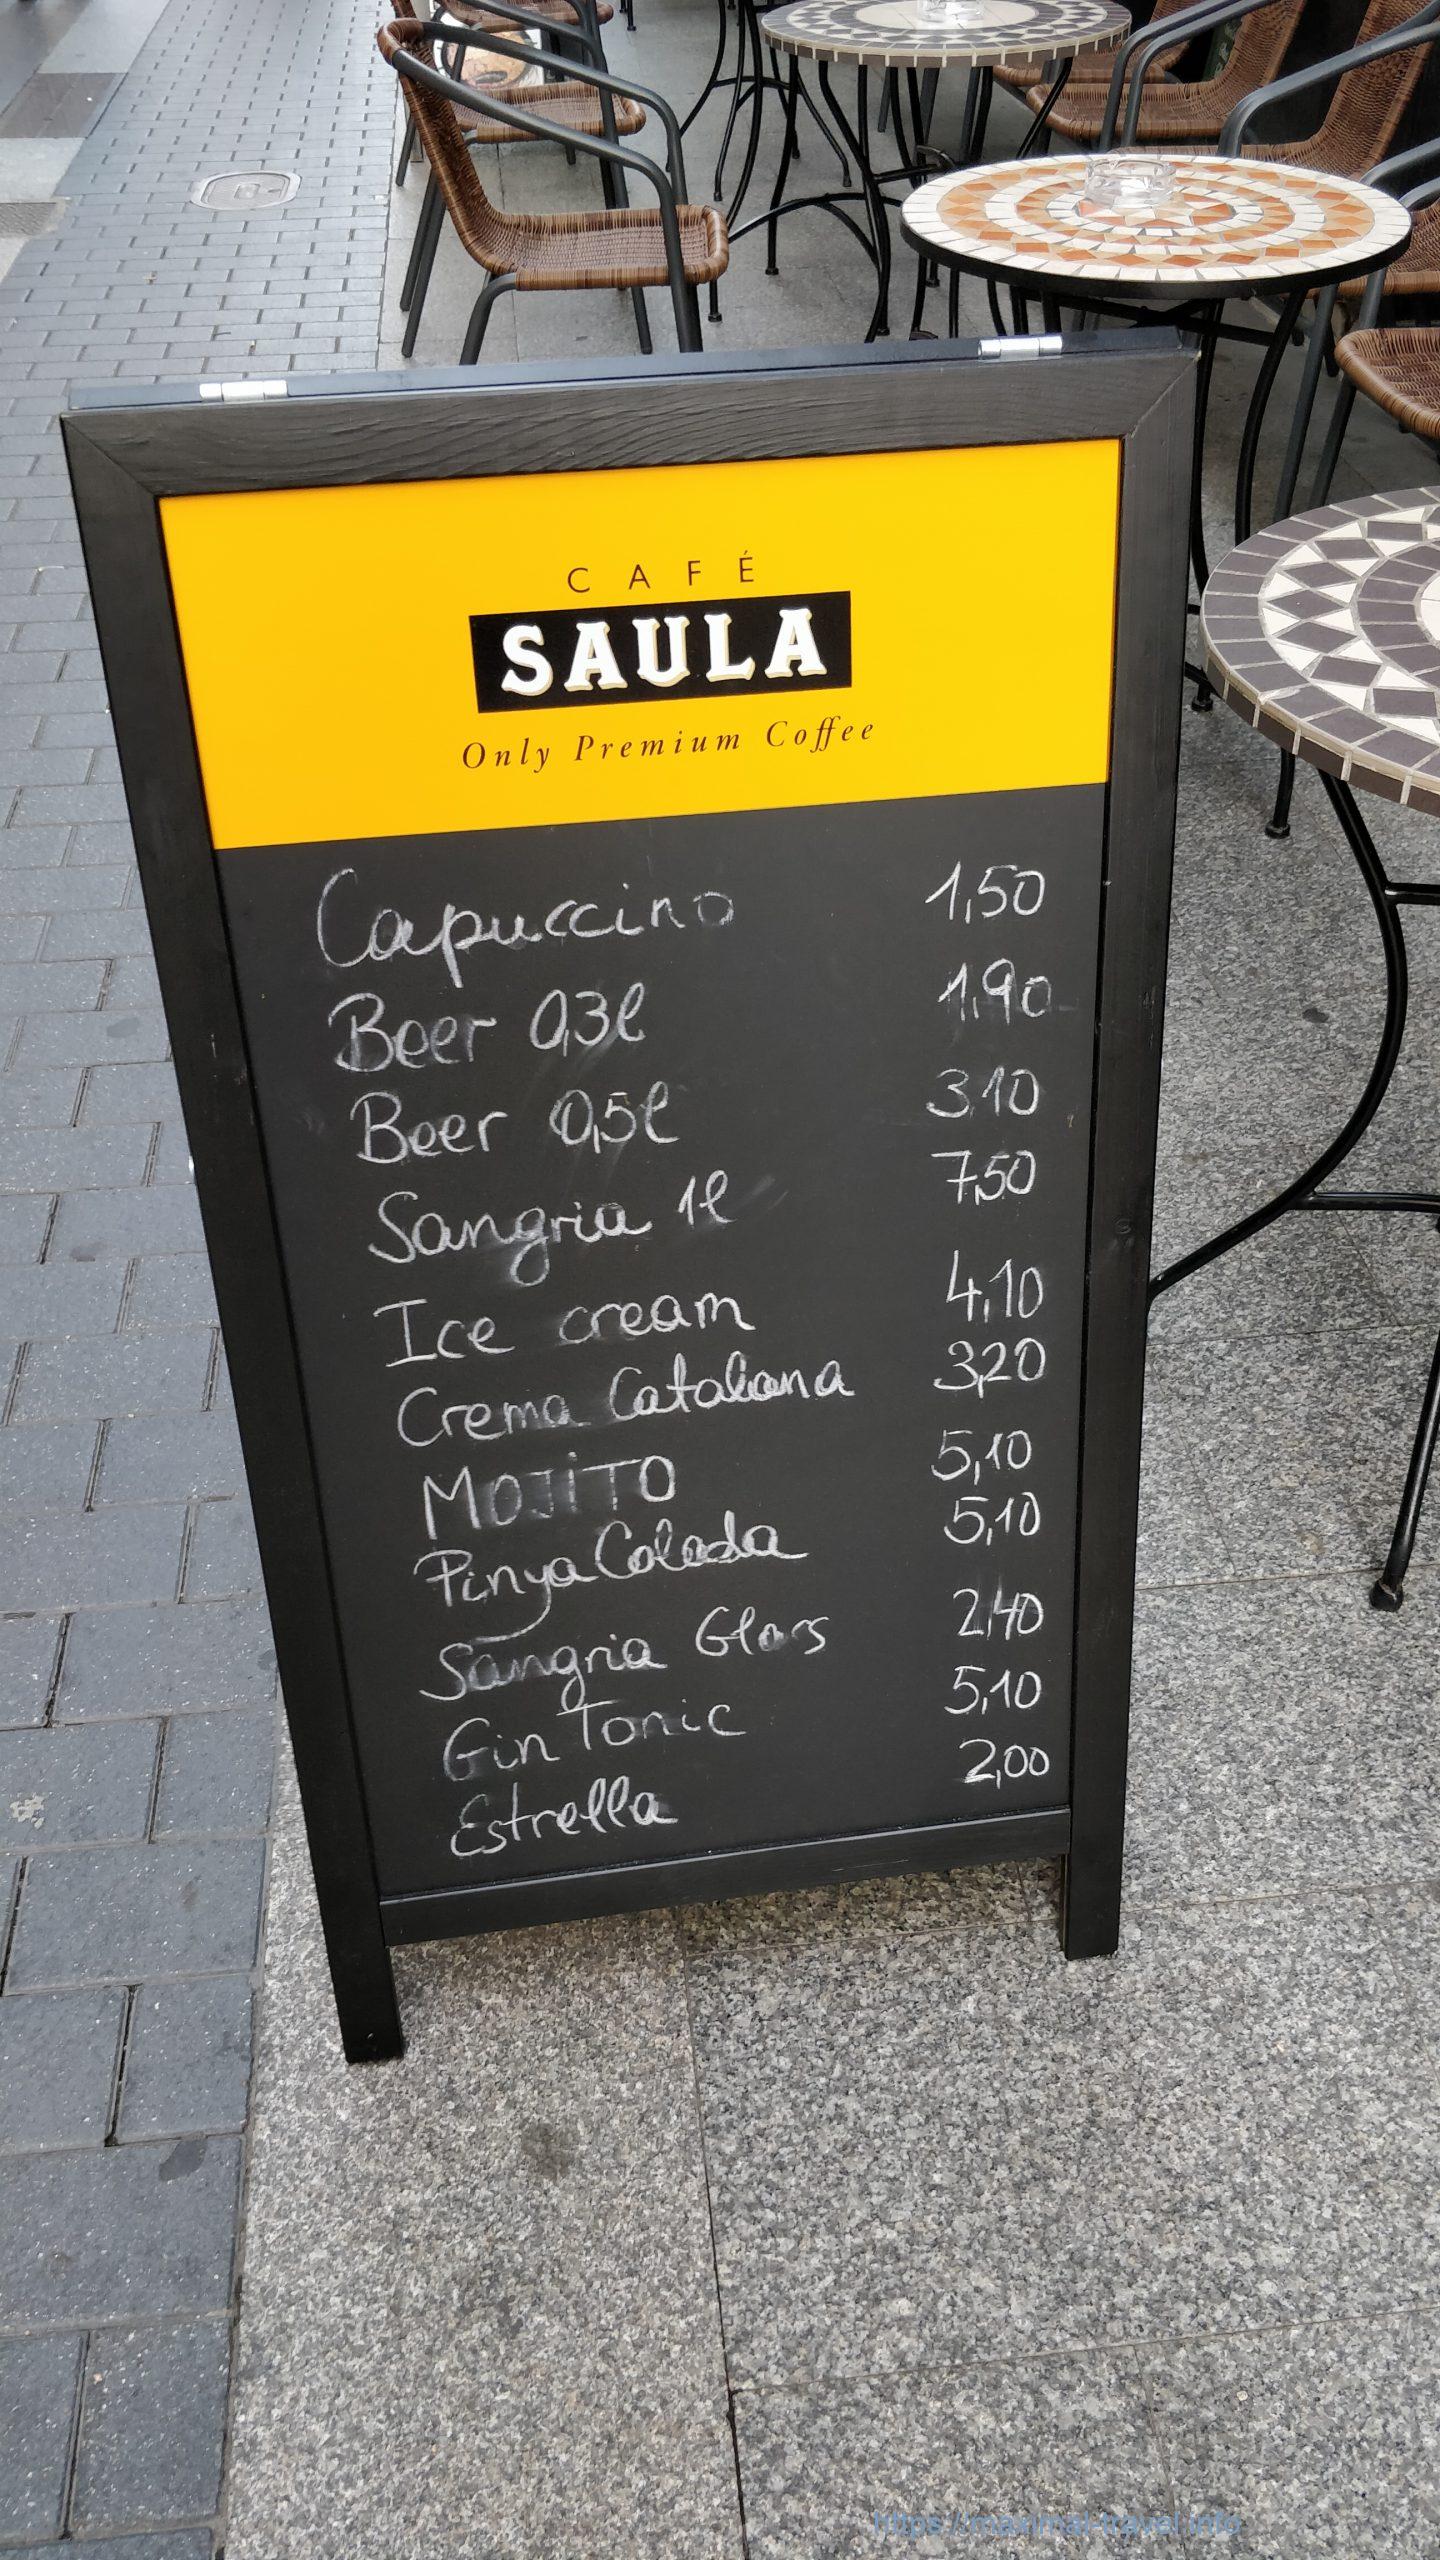 CAFÉ
SAULA
Only Premium Coffee
Capuccino 1,50
Beer 0,3l 1,90
Beer 0,5l 3,10
Sangria 1l 7,50
Ice cream 4,10
Crema Catalana 3,20
MOJITO 5,10
Pinya Colada 5,10
Sangria Glass 2,40
Gin Tonic 5,10
Estrella 2,00
https://maximal-travel.info